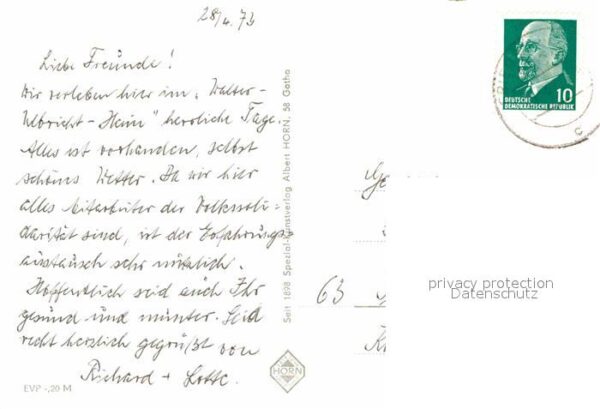 28/4.73
Liebe Freunde!
Wir verleben hier im „Walter-
Ulbricht-Heim" herrliche Tage.
Alles ist vorhanden, selbst
schönes Wetter. Da wir hier
alles Mitarbeiter der Volkssoli-
darität sind, ist der Erfahrungs-
austausch sehr nützlich.
Hoffentlich seid auch Ihr
gesund und munter. Seid
recht herzlich gegrüßt von
Richard + Lotte.
EVP -,20 M
Seit 1898 Spezial-Kunstverlag Albert HORN, 58 Gotha
HORN
DEUTSCHE
DEMOKRATISCHE REPUBLIK
10
c
63
privacy protection
Datenschutz